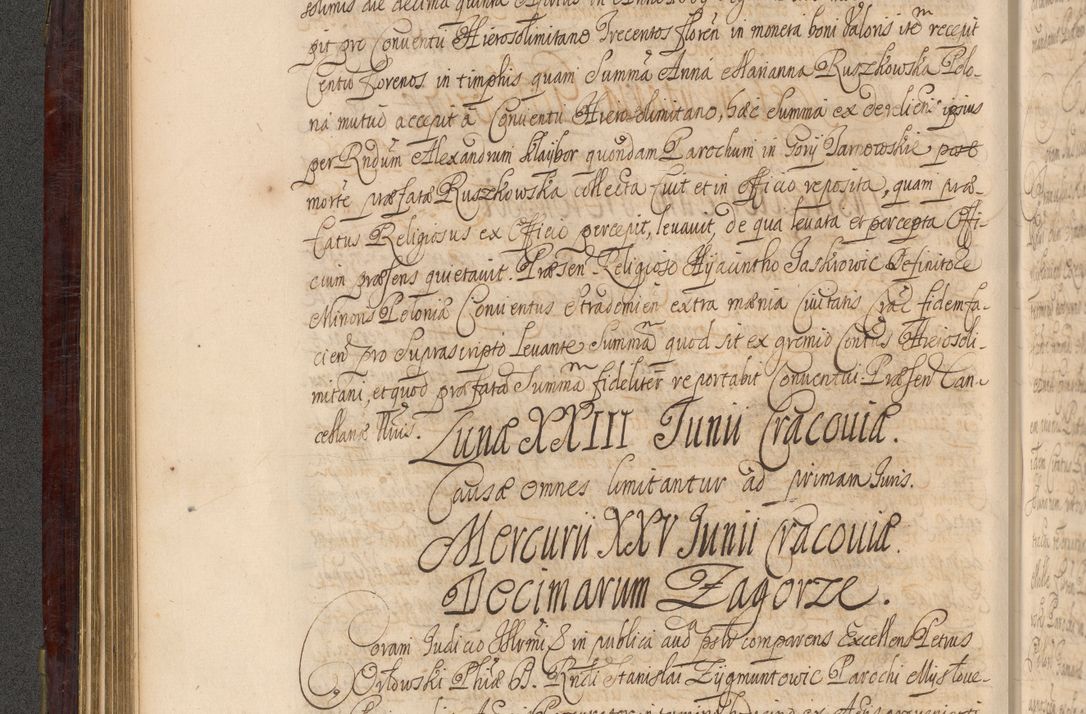 git pro Conventu Hierosolimitano Trecentos floren in moneta boni valoris ite recepit
Centu florenos in timphis quam Summa Anna Marianna Ruszkowska Polo-
na mutuo accepit a Conventu Hierosolimitano, haec Summa ex
per Rndum Alexandrum Klaybor quondam Parochum in Gory Tarnowskie post
morte praefatae Ruszkowska collecta fuit et in Officio reposita, quam prae-
fatus Religiosus ex Officio percepit, levavit, de qua levata et percepta Offi-
cium praesens quietavit. Praesen Religioso Hyacintho Jaskrowic Definitore
Minoris Polonia Conventus Stradomien extra maenia Civitatis Crac fidem fa-
cien pro Suprascripto Levante Summam quod sit ex gremio Contus Hierosoli-
mitani, et quod praefata Summam fideliter reportabit Conventui. Praesen Can-
cellariae Huius.
Lunae XXIII Junii Cracoviae.
Causae omnes limitantur ad primam Juris.
Mercurii XXV Junii Cracoviae.
Decimarum Zagorze.
Coram Judicio Illrmi & in publica aud psltr comparens Excellens Petrus
Orłowski Phiae D. Rndi Stanislai Zygmuntowic Parochi Mysłowe-